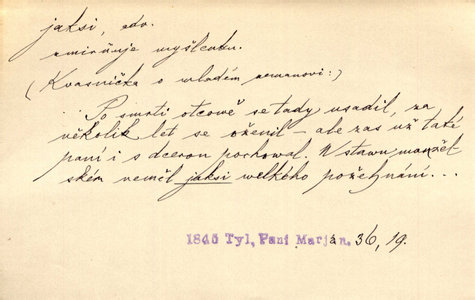 jaksi, adv.
zmirňuje myšlenku.
(Kvasnička o mladém zemanovi:)
Po smrti otcowě se tady usadil, za
několik let se oženil – ale zas už také
paní i s dcerou pochowal. W stawu manžel-
ském neměl jaksi welkého požehnání...
1845 Tyl, Paní Marján. 36, 19.